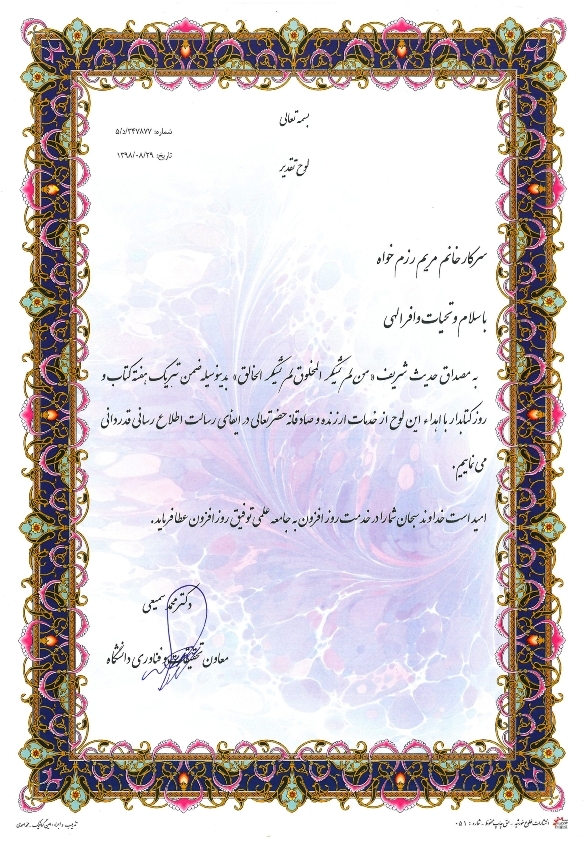 بسمه تعالی
شماره: ۵/د/۳۴۷۸۷۷
تاریخ: ۱۳۹۸/۰۸/۲۹
لوح تقدیر
سرکار خانم مریم رزم خواه
با سلام و تحیات وافر الهی
به مصداق حدیث شریف «من لم یشکر المخلوق لم یشکر الخالق» بدینوسیله ضمن تبریک هفته کتاب و
روز کتابدار با اهداء این لوح از خدمات ارزنده و صادقانه حضرتعالی در ایفای رسالت اطلاع رسانی قدردانی
می نماییم.
امید است خداوند سبحان شما را در خدمت روز افزون به جامعه علمی توفیق روز افزون عطا فرماید.
دکتر محمد سمیعی
معاون تحقیقات و فناوری دانشگاه
انتشارات طلوع خورشید - حق چاپ محفوظ - شماره : ۰۵۱